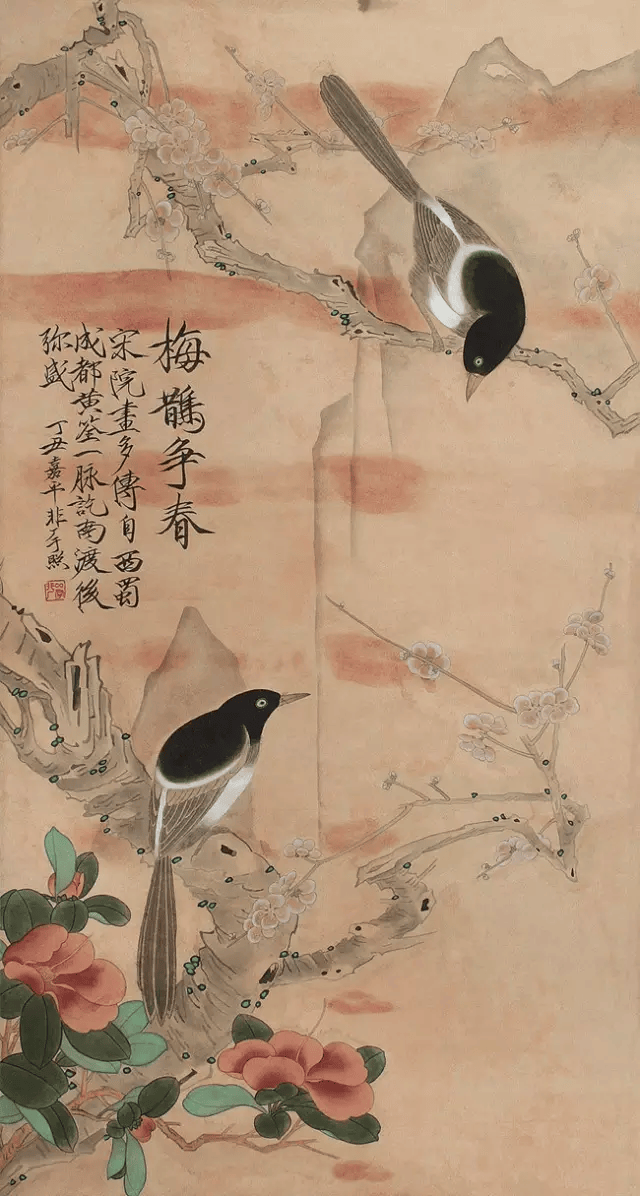 梅鵲争春
宋院畫多傳自西蜀
成都黄筌一脉訖南渡後
弥盛
丁丑嘉平非厂照